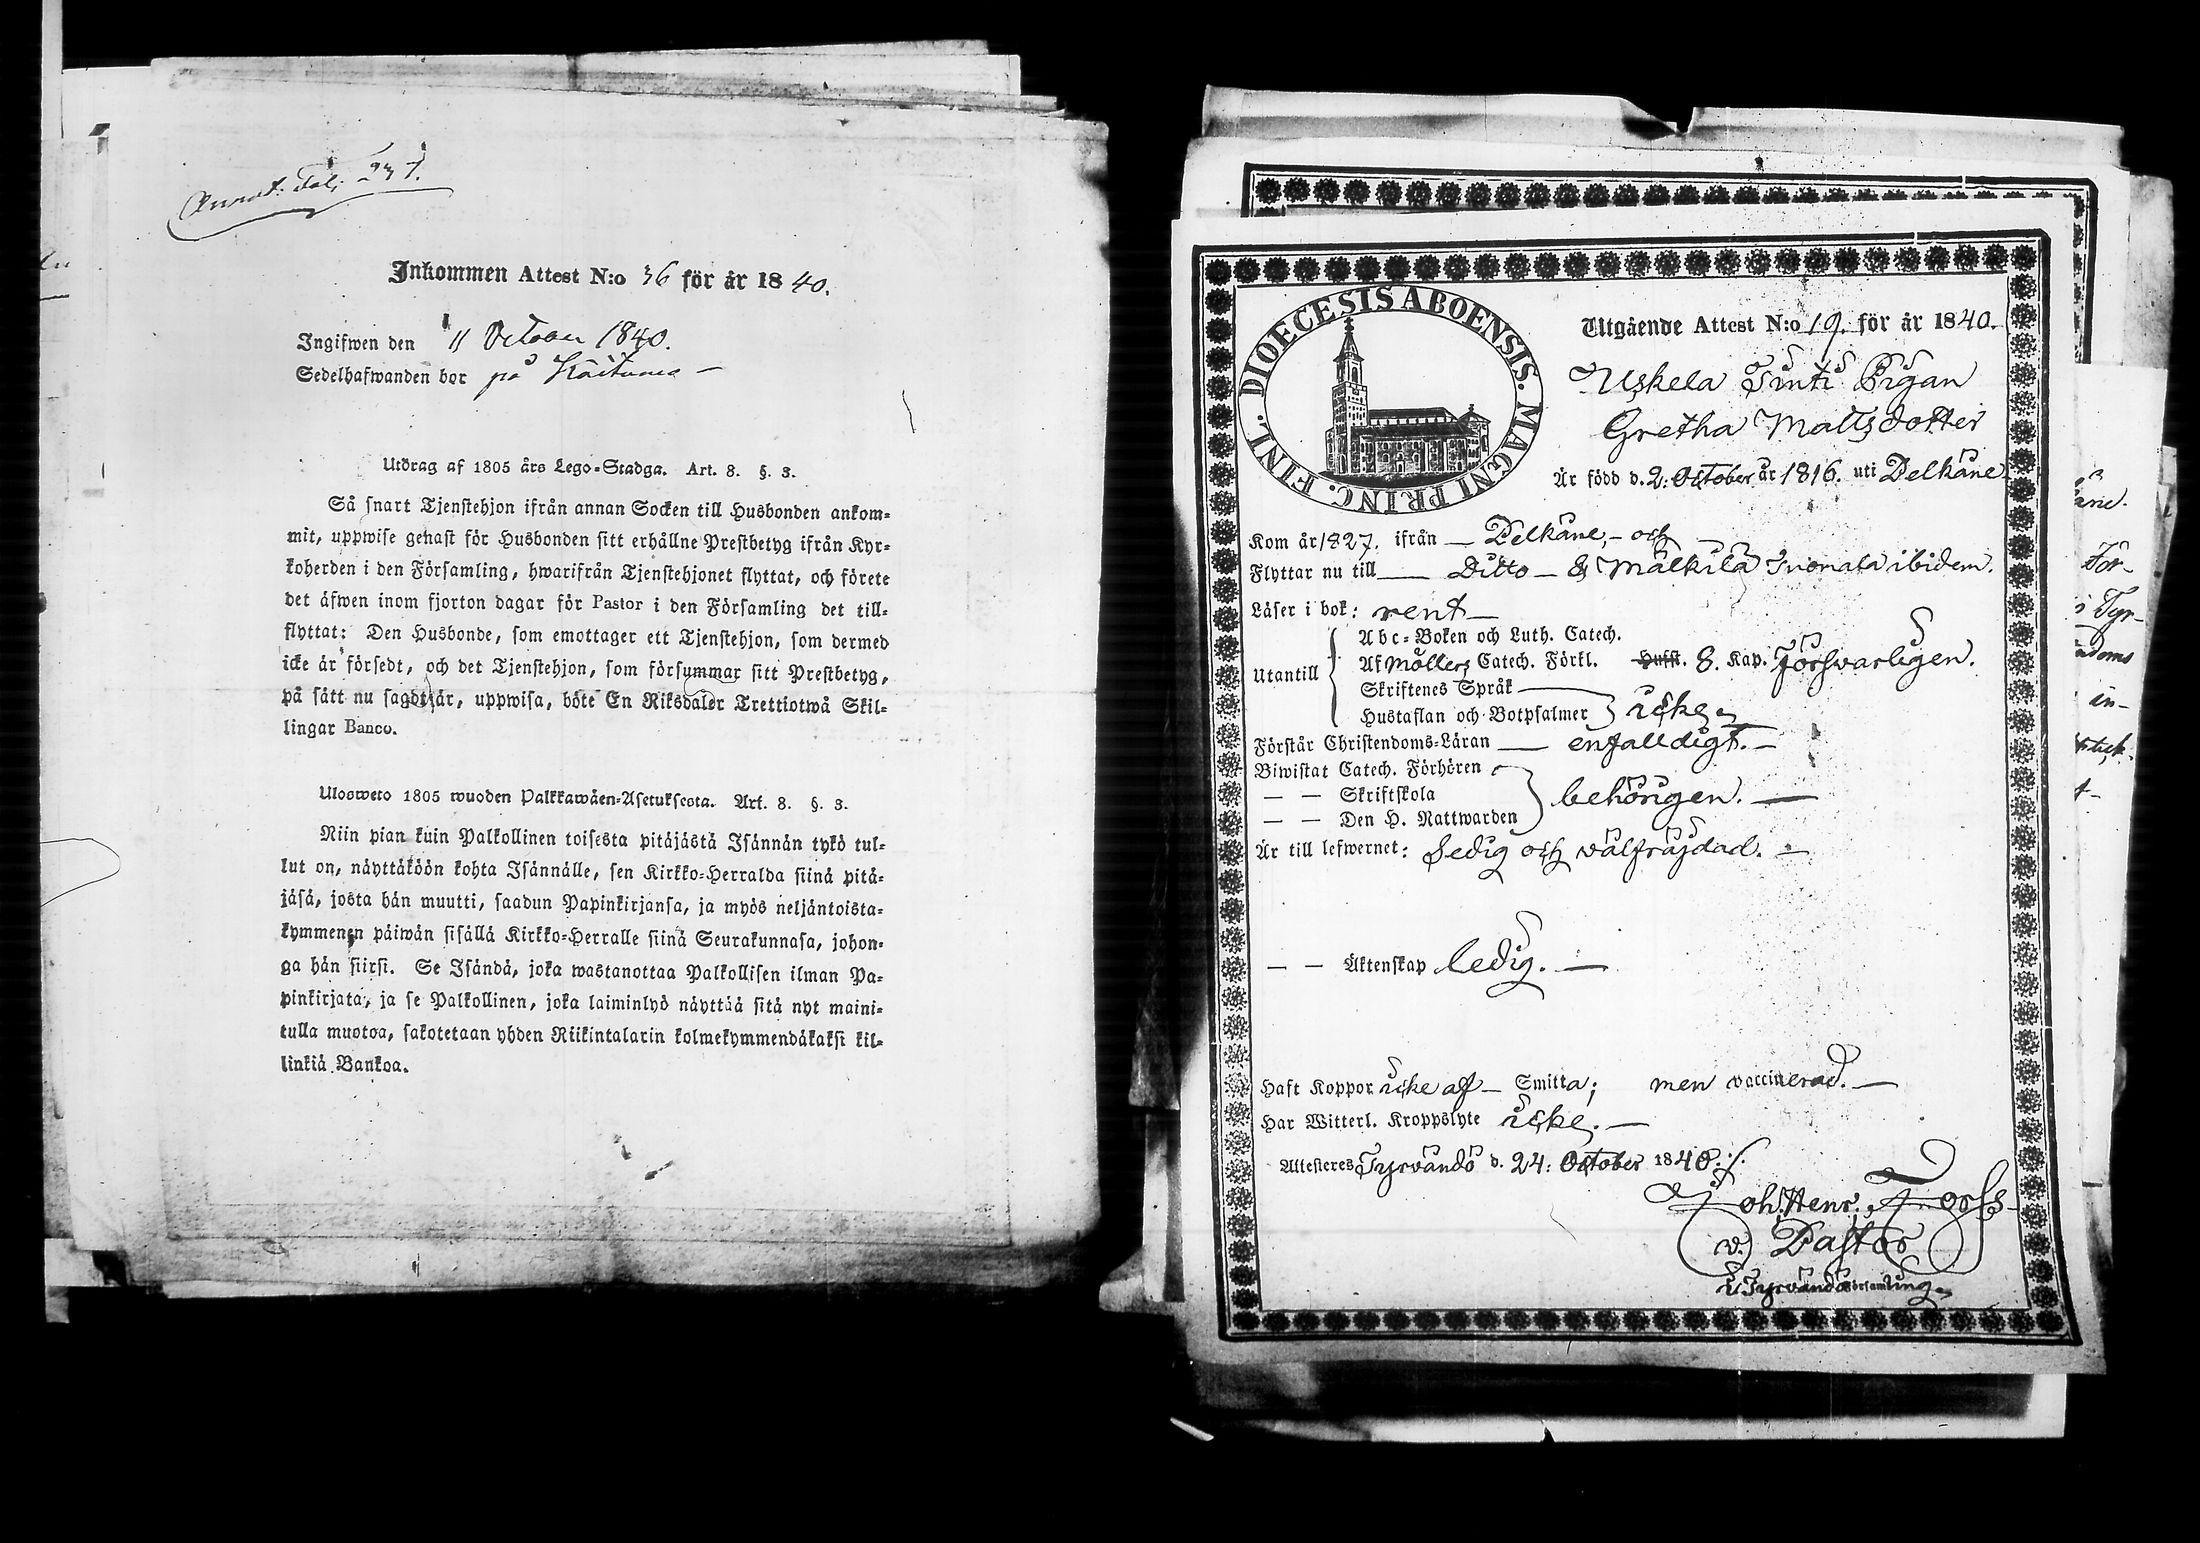 Annot. Fol. 237.
Inkommen Attest N:o 36 för år 1840.
Ingifwen den 11 October 1840.
Sedelhafwanden bor på
Utdrag af 1805 års Lego-Stadga. Art. 8. §. 3.
Så snart Tjenstehjon ifrån annan Socken till Husbonden ankom-
mit, uppwise genast för Husbonden sitt erhållne Prestbetyg ifrån Kyr-
koherden i den Församling, hwarifrån Tjenstehjonet flyttat, och förete
det äfwen inom fjorton dagar för Pastor i den Församling det till-
flyttat: Den Husbonde, som emottager ett Tjenstehjon, som dermed
icke är försedt, och det Tjenstehjon, som försummar sitt Prestbetyg,
på sätt nu sagdt är, uppwisa, böte En Riksdaler Trettiotwå Skil-
lingar Banco.
Ulosweto 1805 wuoden Palkkawäen-Asetuksesta. Art. 8. §. 3.
Niin pian kuin Palkollinen toisesta pitäjästä Isännän tykö tul-
lut on, näyttäköön kohta Isännälle, sen Kirkko-Herralda siinä pitä-
jäsä, josta hän muutti, saadun Papinkirjansa, ja myös neljäntoista-
kymmenen päiwän sisällä Kirkko-Herralle siinä Seurakunnasa, johon-
ga hän siirsi. Se Isändä, joka wastanottaa Palkollisen ilman Pa-
pinkirjata, ja se Palkollinen, joka laiminlyö näyttää sitä nyt maini-
tulla muotoa, sakotetaan yhden Riikintalarin kolmekymmendäkaksi kil-
linkiä Bankoa.
DIOECESIS ABOENSIS. MAGNI PRINC. FINL.
Utgående Attest N:o 19. för år 1840.
Uskela Tinti Pigan
Gretha Mattsdotter
Är född d. 2. October år 1816. uti Pelkäne
Kom år 1827. ifrån — Pelkäne, - och
Flyttar nu till — Ditto — & Mälkilä Inonala ibidem.
Läser i bok: rent —
Abc-Boken och Luth. Catech.
Utantill Af Möllers Catech. Förkl. Hufst. 8. Kap. försvarligen.
Skriftenes Språk —
Hustaflan och Botpsalmer icke
Förstår Christendoms-Läran — enfalldigt. —
Biwistat Catech. Förhören
— — Skriftskola behörigen. —
— — Den H. Nattwarden
Är till lefwernet: sedig och välfräjdad. —
— — Äktenskap ledig. —
Haft Koppor icke af — Smitta; men vaccinerad. —
Har Witterl. Kroppslyte icke. —
Attesteres Tyrvändö d. 24. October 1840. ./.
Joh. Henr. Forss
v. Pastor
i Tyrvändö Församling.